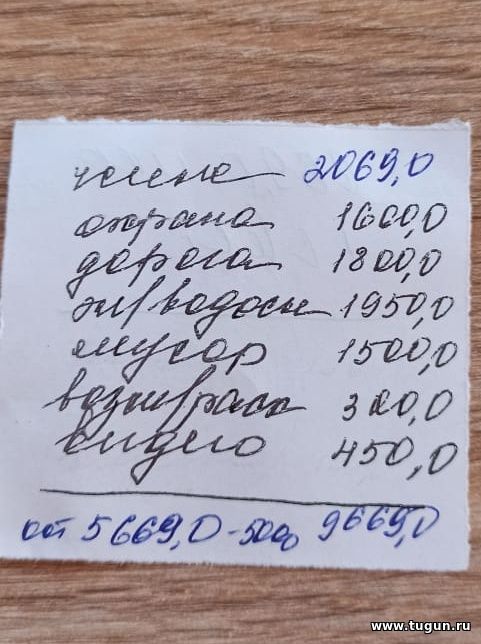 2069,0
охрана 1600,0
дорога 1800,0
эл/водосн 1950,0
мусор 1500,0
300,0
видео 450,0
5669,0 - 5000 9669,0
www.tugun.ru